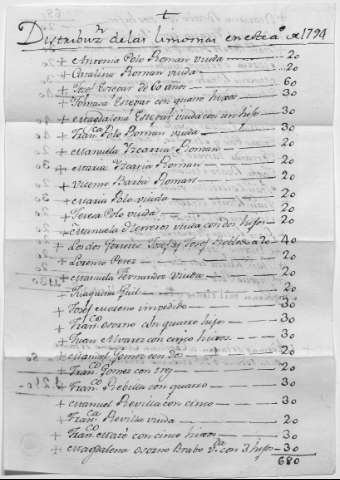 +
Distribuz.n de las limosnas en este a.o de 1794
+ Antonia Polo Roman viuda 20
+ Catalina Roman viuda 20
+ Josef Estepar de 60 años 60
+ Tomasa Estepar con quatro hixos 30
+ Magdalena Estepar viuda con un hijo 30
+ Fran.ca Polo Roman viuda 30
+ Manuela Vicaria Romano 20
+ Maria Vicaria Roman 20
+ Vicente Barba Roman 20
+ Maria Polo viuda 20
+ Teresa Polo viuda 20
+ Manuela Herreros viuda con dos hijos 20
+ Los dos Josef y Josef a 20 40
+ Lorenzo Perez 20
+ Manuela Fernandez Viuda 20
+ Joaquina Gil 20
+ Josef Moreno impedido 30
+ Fran.co Osorno con quatro hijos 30
+ Juan Alvarez con cinco hixos 30
+ Manuel Gomez con dos 20
+ Fran.co Gomez con tres 20
+ Fran.co Rebilla con quatro 30
+ Manuel Revilla con cinco 30
+ Fran.ca Revilla viuda 20
+ Fran.co con cinco hixos 30
+ Magdalena Osorno Brabo V.a con 3 hijos 30
680